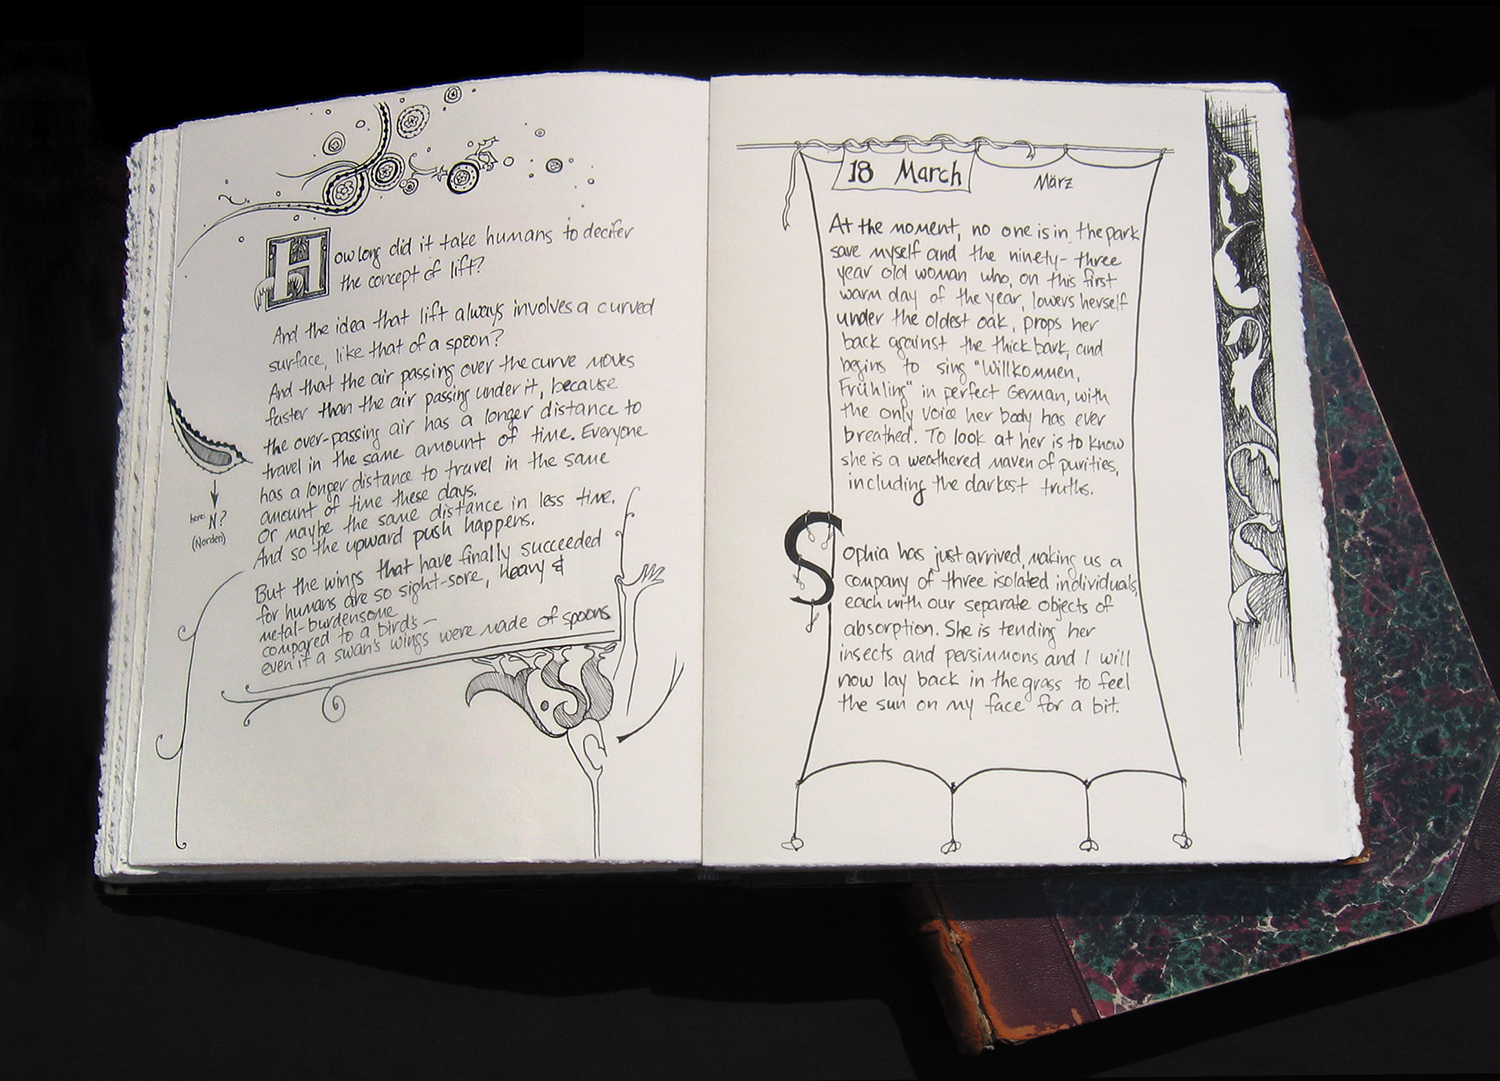 How long did it take humans to decifer
the concept of lift?
And the idea that lift always involves a curved
surface, like that of a spoon?
And that the air passing over the curve moves
faster than the air passing under it, because
the over-passing air has a longer distance to
travel in the same amount of time. Everyone
has a longer distance to travel in the same
amount of time these days.
Or maybe the same distance in less time.
And so the upward push happens.
But the wings that have finally succeeded
for humans are so sight-sore, heavy &
metal-burdensome
compared to a bird's —
even if a swan's wings were made of spoons
here:
N?
(Norden)
18 March
März
At the moment, no one is in the park
save myself and the ninety-three
year old woman who, on this first
warm day of the year, lowers herself
under the oldest oak, props her
back against the thick bark, and
begins to sing "Willkommen,
Frühling" in perfect German, with
the only voice her body has ever
breathed. To look at her is to know
she is a weathered maven of purities,
including the darkest truths.
Sophia has just arrived, making us a
company of three isolated individuals,
each with our separate objects of
absorption. She is tending her
insects and persimmons and I will
now lay back in the grass to feel
the sun on my face for a bit.